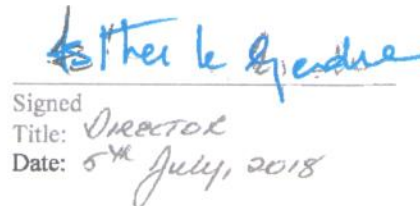 Esther le Gendre
Signed
Title: DIRECTOR
Date: 5th July, 2018